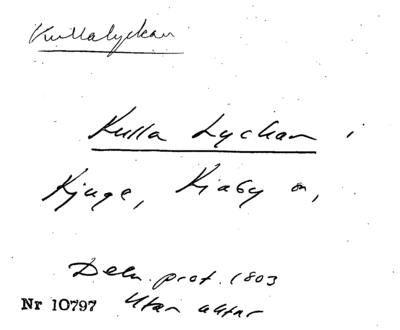 Kullalyckan
Kulla Lyckan i
Kjuge, Kiaby sn,
Deln. prot. 1803
Nr 10797 Utan aktnr